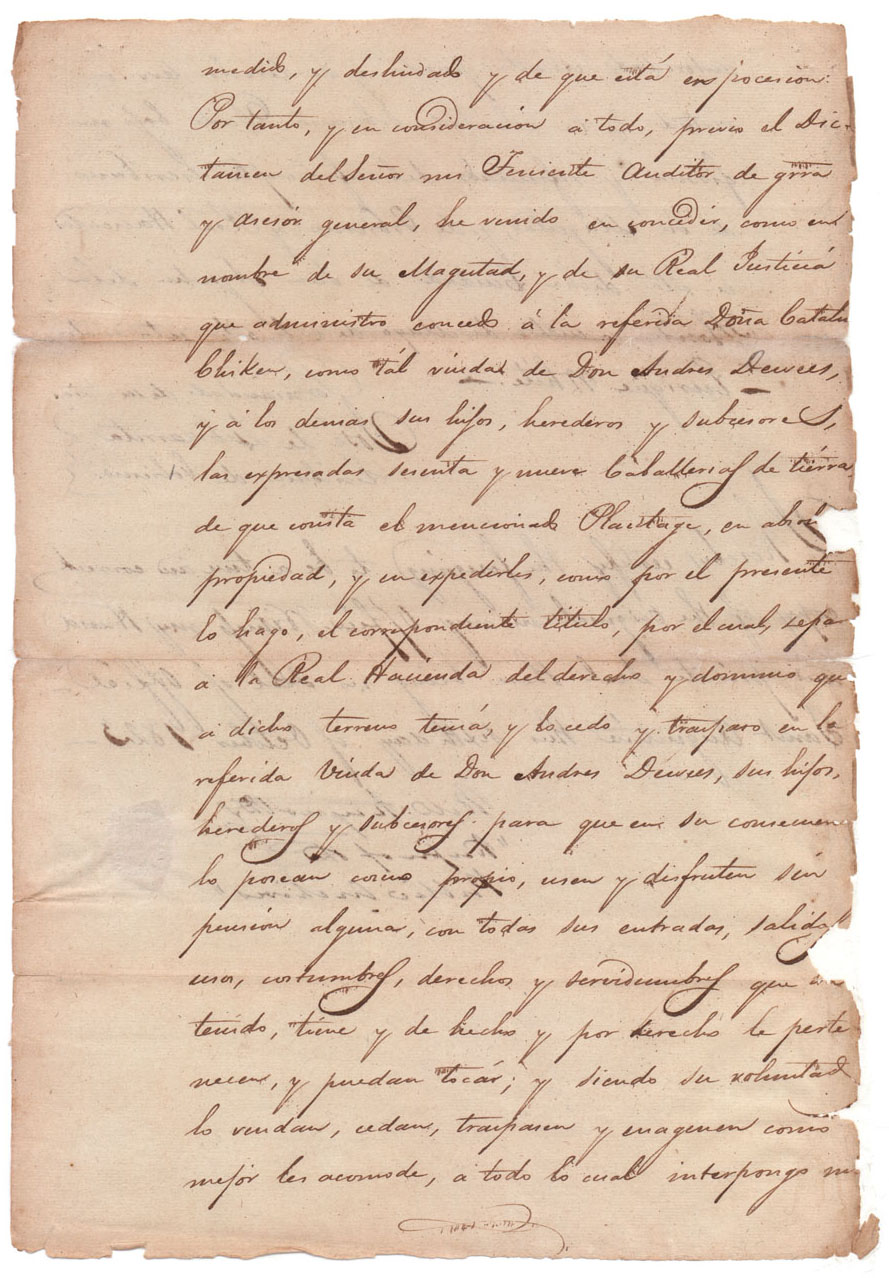 medido, y deslindado y de que está en pocesion:
Por tanto, y en consideracion á todo, previo el Dic-
tamen del Señor mi Teniente Auditor de grra
y asesór general, he venido en concedér, como en
nombre de su Magestad, y de su Real Justicia
que administro concedo á la referida Doña Catalin
Chiken, como tál viuda de Don Andres Dewees,
y á los demas sus hijos, herederos y subcesores,
las expresadas sesenta y nueve Caballerias de tierra
de que consta el mencionado Plaintage, en absol
propiedad, y en expedirles, como por el presente
lo hago, el correspondiente titulo, por el cual, sepa
á la Real Hacienda del derecho y dominio que
á dicho terreno tenia, y lo cedo y traspaso en la
referida Viuda de Don Andres Dewees, sus hijos,
herederos y subcesores para que en su consecuen
lo posean como propio, usen y disfruten sin
pensión alguna, con todas sus entradas, salidas
usos, costumbres, derechos y servidumbres que
tenido, tiene y de hecho y por derecho le perte
necen, y puedan tocár; y siendo su voluntad
lo vendan, cedan, traspasen y enagenen como
mejor les acomode, á todo lo cual interpongo m